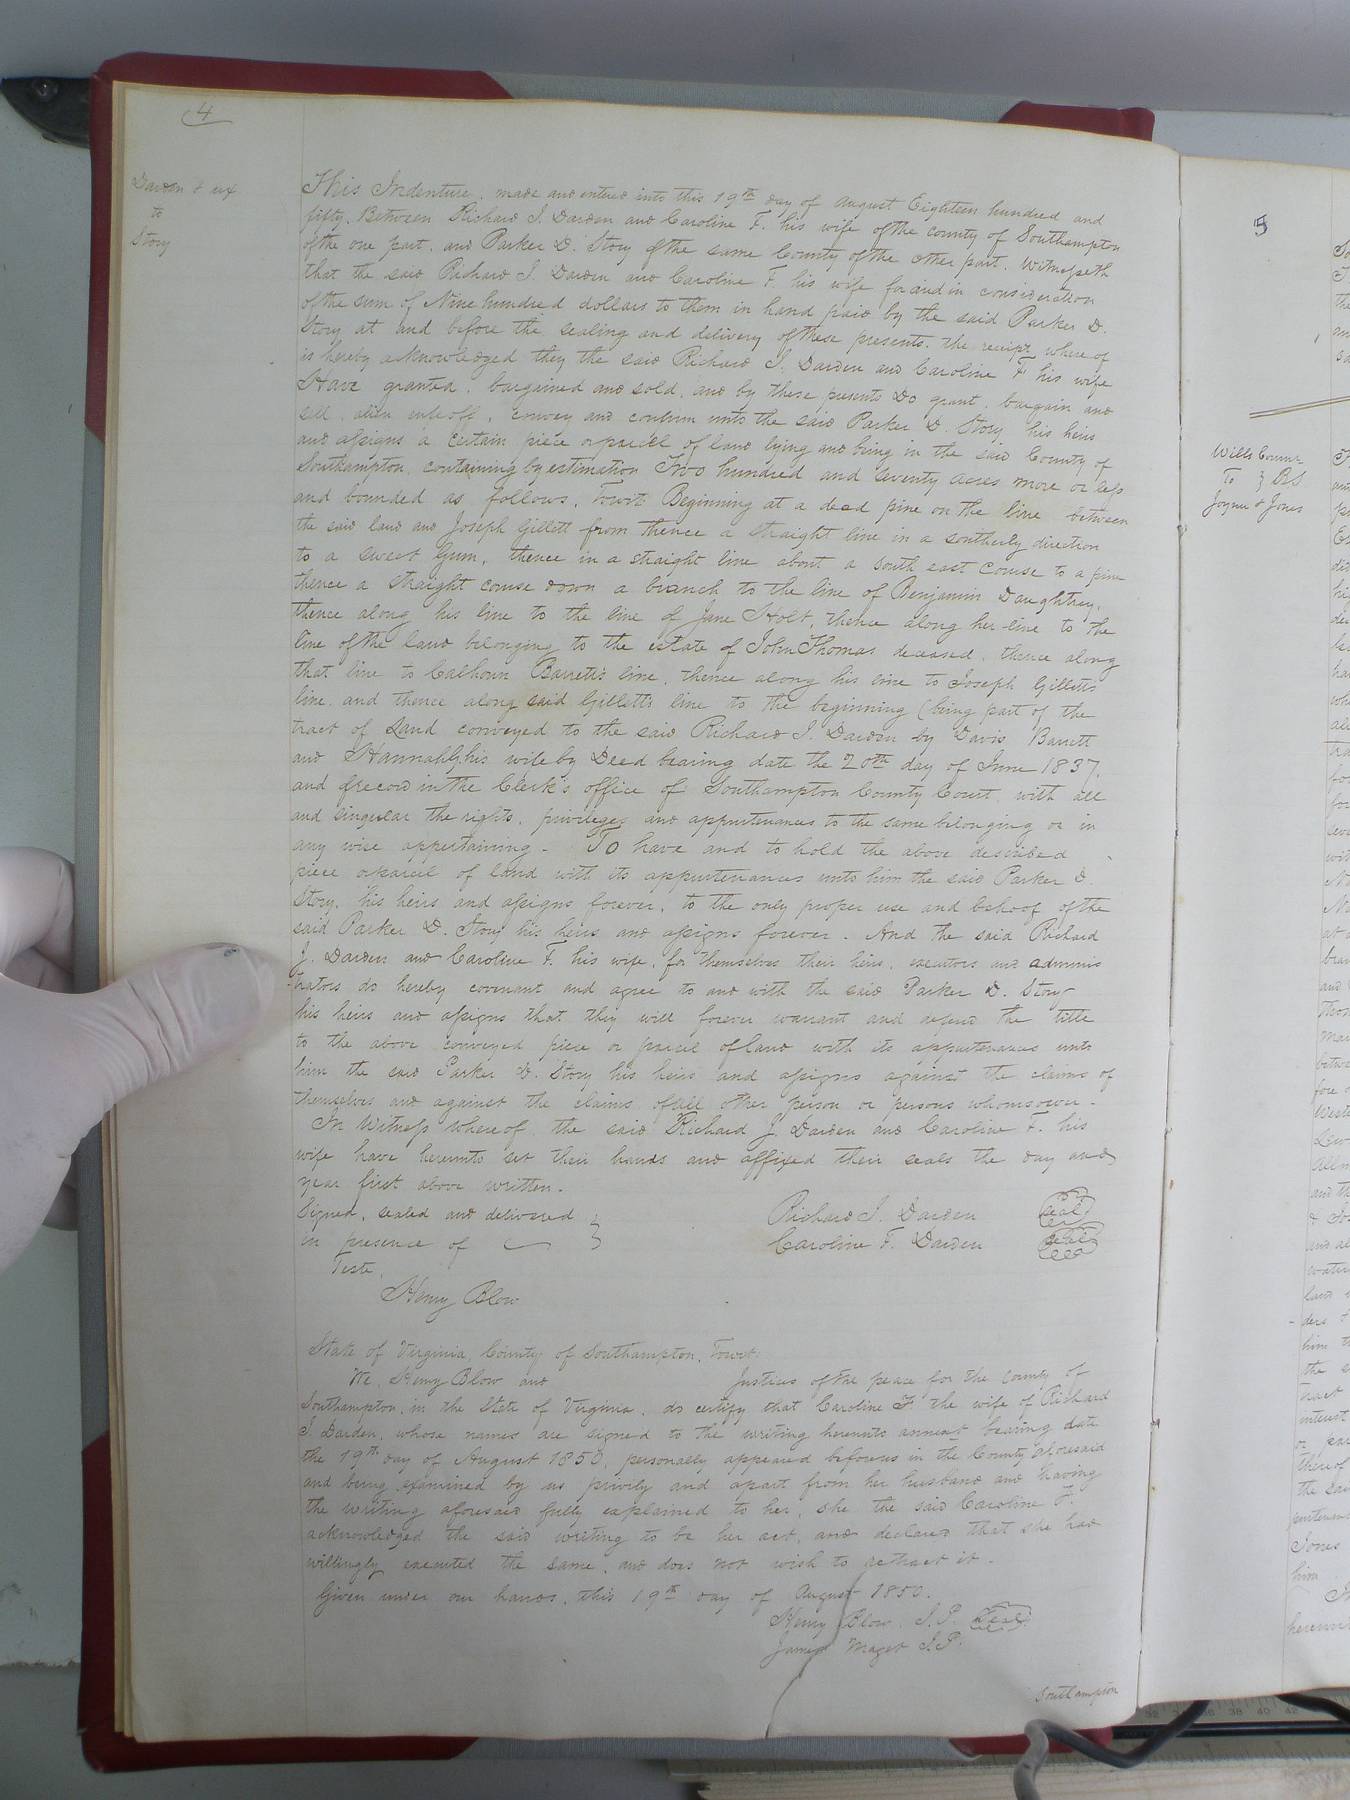 4
Darden & ux
to
Story
This Indenture, made and entered into this 19th day of August Eighteen hundred and
fifty, Between Richard J. Darden and Caroline F. his wife of the county of Southampton
of the one part, and Parker D. Story of the same County of the other part. Witnesseth
that the said Richard J. Darden and Caroline F. his wife for and in consideration
of the sum of Nine hundred dollars to them in hand paid by the said Parker D.
Story at and before the sealing and delivery of these presents, the receipt where of
is hereby acknowledged they the said Richard J. Darden and Caroline F his wife
Have granted, bargained and sold, and by these presents Do grant, bargain and
sell, alien enfeoff, convey and confirm unto the said Parker D. Story his heirs
and assigns a certain piece or parcel of land lying and being in the said County of
Southampton, containing by estimation Two hundred and seventy acres more or less
and bounded as follows, Towit: Beginning at a dead pine on the line between
the said land and Joseph Gillett from thence a straight line in a southerly direction
to a sweet Gum, thence in a straight line about a south east Course to a pine
thence a straight course down a branch to the line of Benjamin Daughtrey,
thence along his line to the line of Jane Holt, thence along her line to the
line of the land belonging to the estate of John Thomas deceased, thence along
that line to Calhoun Barrett's line, thence along his line to Joseph Gilletts
line, and thence along said Gilletts line to the beginning (being part of the
tract of Land conveyed to the said Richard J. Darden by Davis Barrett
and Hannah his wife by Deed bearing date the 20th day of June 1837,
and of record in the Clerk's office of Southampton County Court, with all
and singular the rights, privileges and appurtenances to the same belonging or in
any wise appertaining - To have and to hold the above described
piece or parcel of land with its appurtenances unto him the said Parker D.
Story, his heirs and assigns forever, to the only proper use and behoof of the
said Parker D. Story his heirs and assigns forever. And the said Richard
J. Darden and Caroline F. his wife, for themselves their heirs, executors and adminis
-trators do hereby covenant and agree to and with the said Parker D. Story
his heirs and assigns that they will forever warrant and defend the title
to the above conveyed piece or parcel of land with its appurtenances unto
him the said Parker D. Story his heirs and assigns against the claims of
themselves and against the claims of all other person or persons whomsoever -
In Witness whereof the said Richard J Darden and Caroline F. his
wife have hereunto set their hands and affixed their seals the day and
year first above written.
Signed, sealed and delivered } Richard J. Darden seal
in presence of Caroline F. Darden seal
Teste,
Henry Blow
State of Virginia, County of Southampton, Towit:
We, Henry Blow and Justices of the peace for the county of
Southampton, in the State of Virginia, do certify that Caroline F the wife of Richard
J. Darden, whose names are signed to the writing hereunto annext bearing date
the 19th day of August 1850, personally appeared before us in the County aforesaid
and being examined by us privily and apart from her husband and having
the writing aforesaid fully explained to her, she the said Caroline F.
acknowledged the said writing to be her act, and declared that she had
willingly executed the same, and does not wish to retract it.
Given under our hands, this 19th day of August 1850.
Henry Blow. J.P. Seal
James Maget J.P.
Southampton
5
Wills Comr
To } B&S
Joyner & Jones